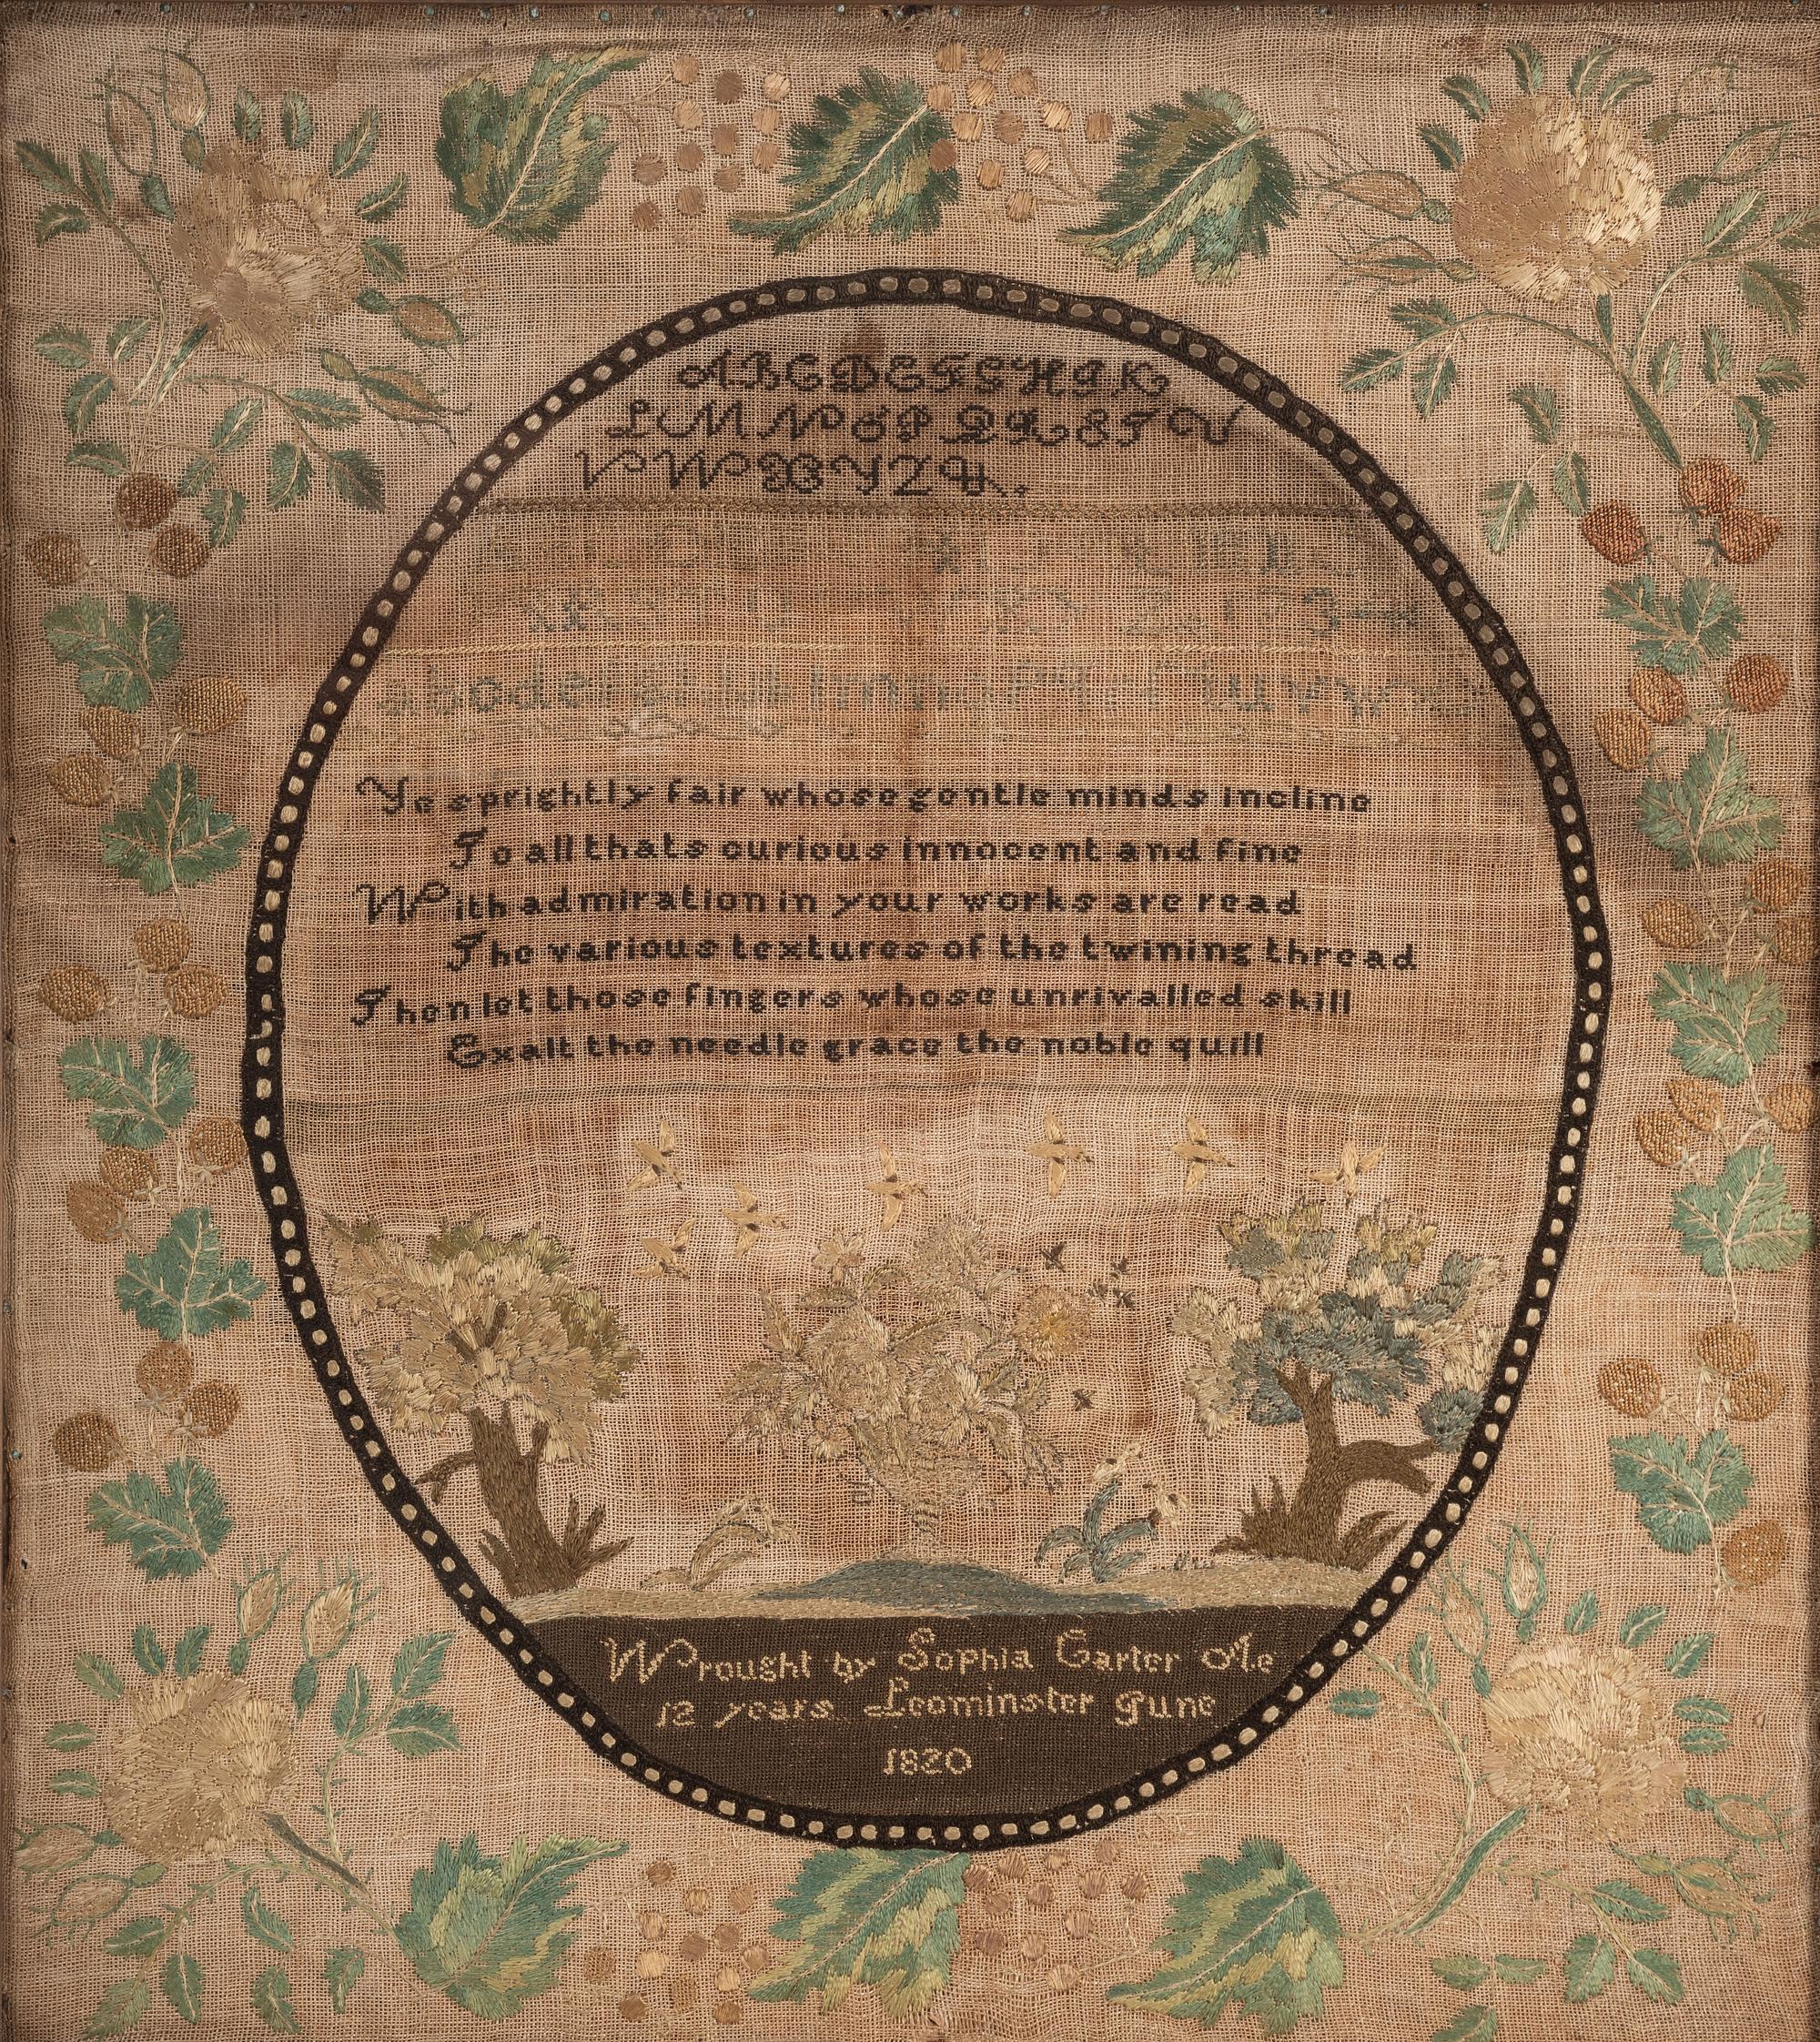 ABCDEFGHIK
LMNOPQRSTU
VWXYZ&.
Ye sprightly fair whose gentle minds incline
To all thats curious innocent and fine
With admiration in your works are read
The various textures of the twining thread
Then let those fingers whose unrivalled skill
Exalt the needle grace the noble quill
Wrought by Sophia Carter Ae
12 years Leominster June
1820